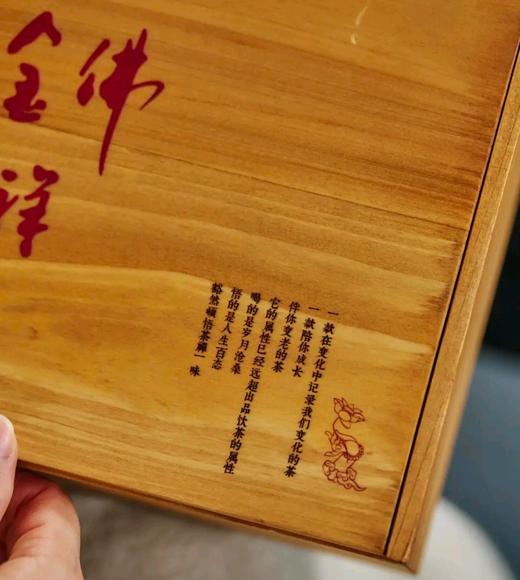 金佛
一款在变化中记录我们变化的茶
一款陪你成长
伴你变老的茶
它的属性已经远超出品饮茶的属性
喝的是岁月沧桑
悟的是人生百态
豁然顿悟茶禅一味